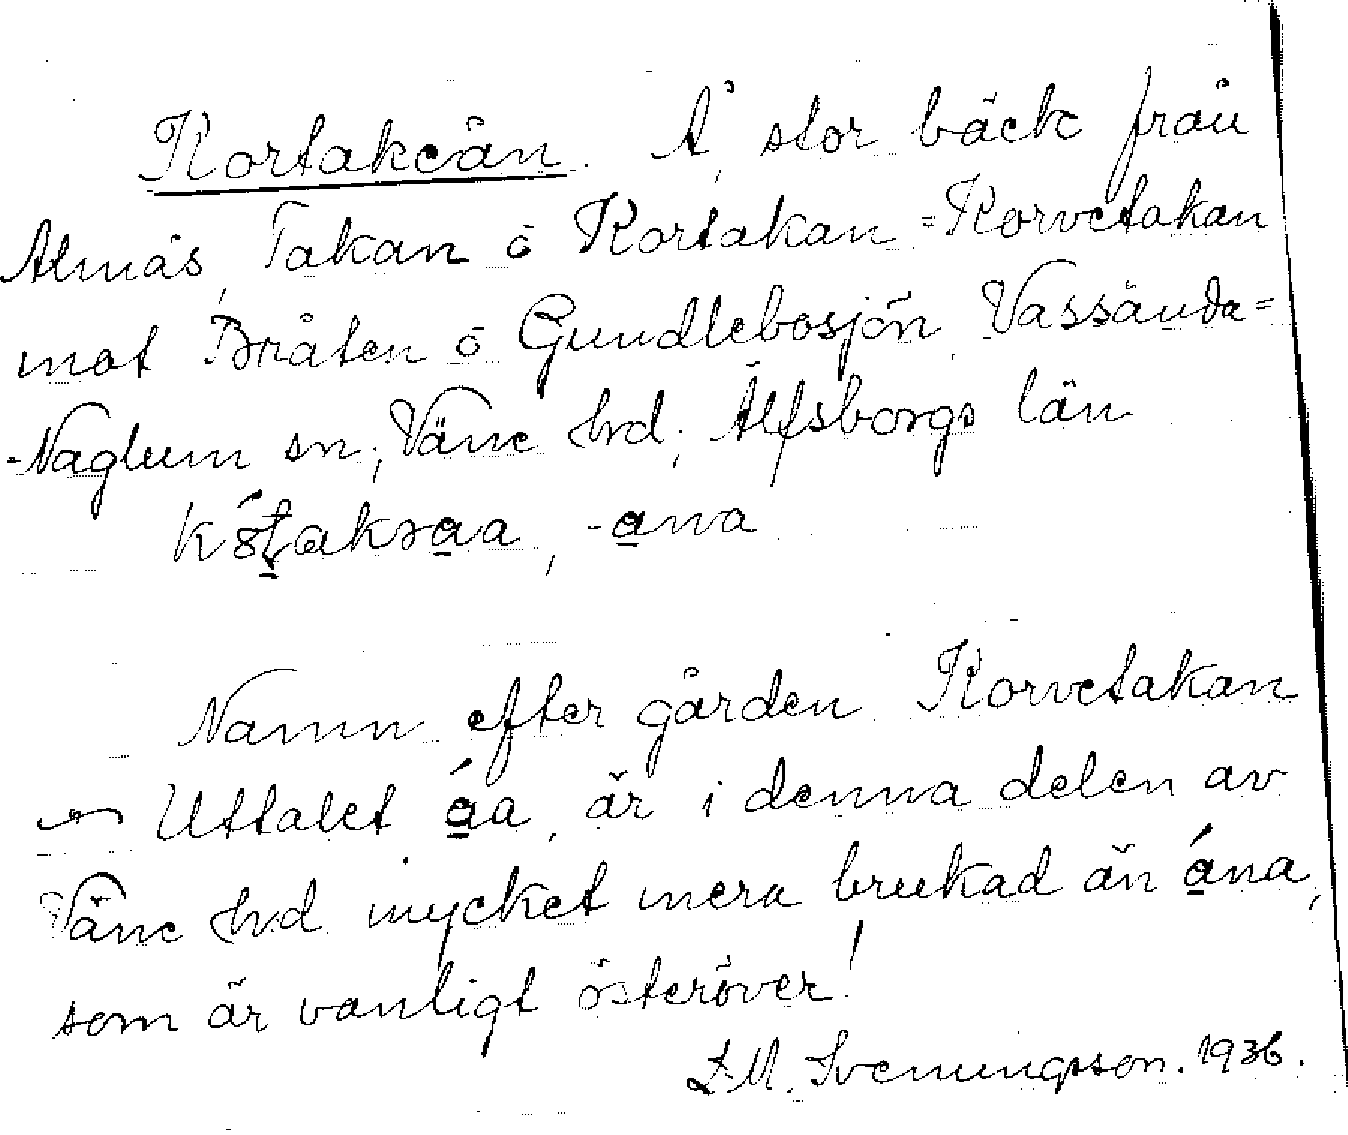 Kortakeån. Å, stor bäck från
Almås, Takan o Kortakan = Korvetakan
mot Bråten o Gundlebosjön, Vassända=
-Naglum sn, Väne hrd, Älfsborgs län
-ana
Namn efter gården Korvetakan
Uttalet áa, är i denna delen av
Väne hrd mycket mera brukad än ána,
som är vanligt österöver!
Svenningsson. 1936.